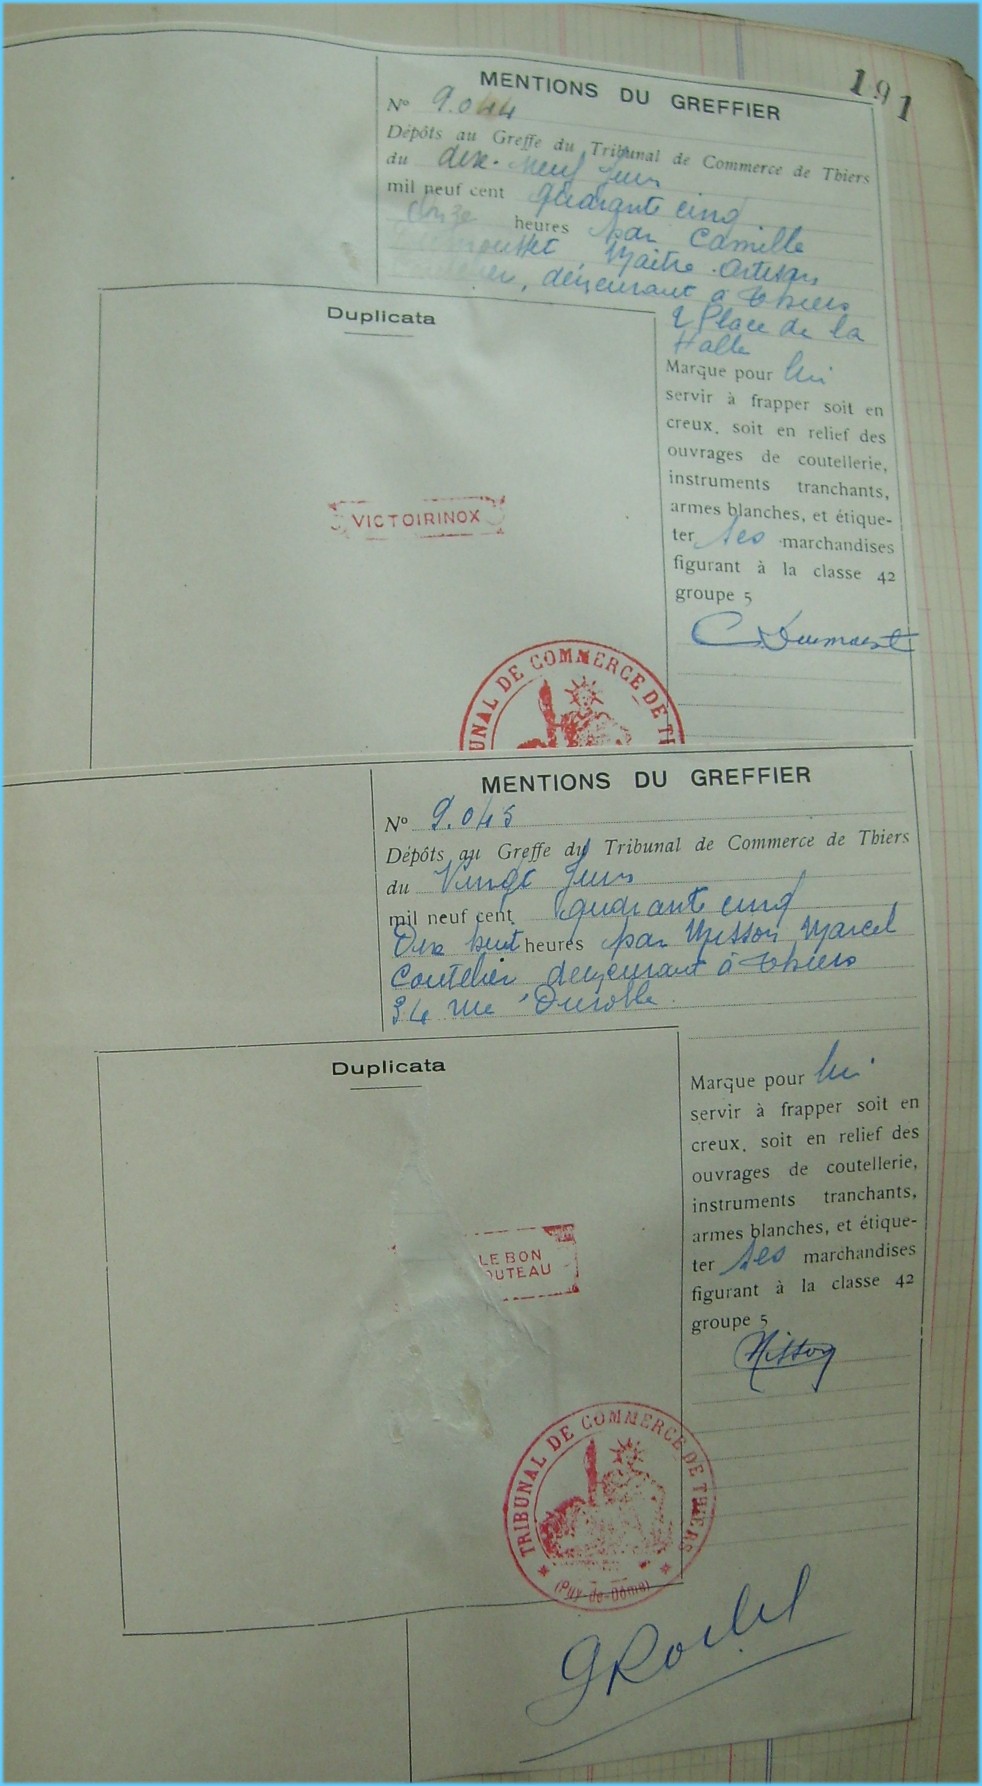 191
MENTIONS DU GREFFIER
N° 9.044
Dépôts au Greffe du Tribunal de Commerce de Thiers
du dix-neuf Juin
mil neuf cent quarante cinq
onze heures par Camille
Maitre Artisan
demeurant à Thiers
2 Place de la
Halle
Duplicata
Marque pour lui
servir à frapper soit en
creux, soit en relief des
ouvrages de coutellerie,
instruments tranchants,
armes blanches, et étique-
ter ses marchandises
figurant à la classe 42
groupe 5
VICTOIRINOX
TRIBUNAL DE COMMERCE DE TH
MENTIONS DU GREFFIER
N° 9.045
Dépôts au Greffe du Tribunal de Commerce de Thiers
du Vingt Juin
mil neuf cent quarante cinq
Dix huit heures par Misson Marcel
Coutelier demeurant à Thiers
34 rue Durolle
Duplicata
Marque pour lui
servir à frapper soit en
creux, soit en relief des
ouvrages de coutellerie,
instruments tranchants,
armes blanches, et étique-
ter ses marchandises
figurant à la classe 42
groupe 5
LE BON
OUTEAU
Misson
TRIBUNAL DE COMMERCE DE THIERS
(Puy-de-Dôme)